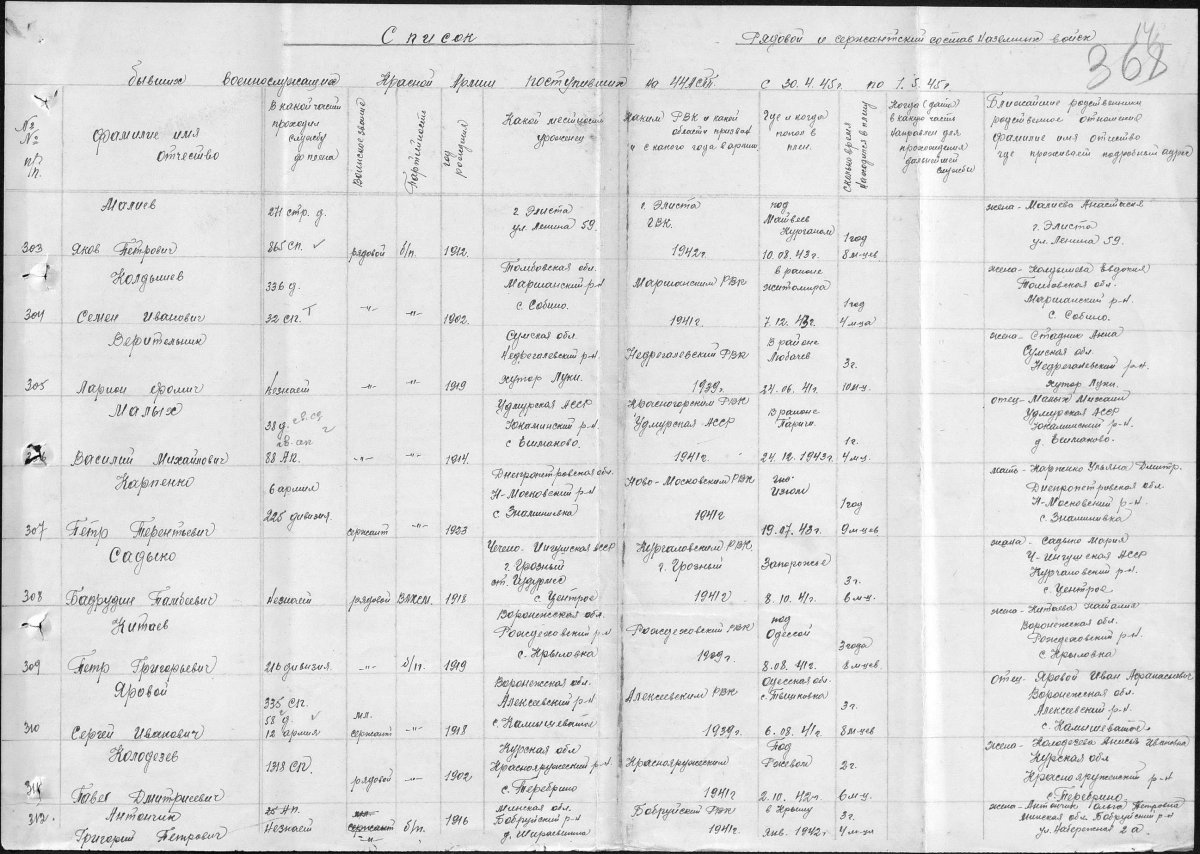 Список
Рядовой и сержантский состав Наземных войск
14
368
бывших военнослужащих Красной Армии поступивших на 44АСПП. с 30.4.45г. по 1.5.45г
№№ п/п.
Фамилие имя отчество
В какой части проходил службу до плена
Воинское звание
Партейность
год рождения
Какой месности уроженец
Каким РВК и какой области призван и с какого года в армии.
Где и когда попал в плен.
Сколько время находился в плену
Когда (дата) в какую часть направлен для прохождения дальнейшей службы
Ближайшие родственники родственное отношение фамилие имя отчество где проживает подробный адрес
303
Малиев
Яков Петрович
271 стр. д.
865 СП.
рядовой
б/п.
1912.
г. Элиста
ул. Ленина 59.
г. Элиста
ГВК.
1942г.
под
Матвеев
Курганом
10.08.43г.
1год
8 м-цев
жена - Малиева Анастасия
г. Элиста
ул. Ленина 59.
304
Колдышев
Семен Иванович
336 д.
32 СП.
-"-
-"-
1902.
Томбовская обл.
Маршанский р-н
с. Собино.
Маршанским РВК
1941г.
в районе
житомира
7.12.43г.
1год
4 м-ца
жена - Колдышева Евдокия
Томбовская обл.
Маршанский р-н.
с. Собино.
305
Верительник
Ларион Фомич
Незнает
-"-
-"-
1919
Сумская обл.
Недрегалевский р-н.
хутор Луки.
Недрегалевский РВК
1939г.
В районе
Любачев
24.06.41г.
3г.
10 м-ц.
жена - Стадник Анна
Сумская обл.
Недрегалевский р-н.
хутор Луки.
Малых
Василий Михайлович
38 д.
88 АП.
-"-
-"-
1914.
Удмурская АССР
с Ешманово.
Красногорским РВК
Удмурская АССР
1941г.
В районе
24.12.1943г.
1г.
4 м-ц.
отец - Малых Михаил
Удмурская АССР
д. Ешманово.
307
Карпенко
Петр Терентьевич
6 армия
225 дивизия.
сержант
-"-
1923
Днепропетровская обл.
Н-Московский р-н
с. Знаминивка
Ново-Московским РВК
1941г
Изюм
19.07.43г.
1год
9 м-цев
мать - Карпенко Ульяна Дмитр.
Днепропетровская обл.
Н-Московский р-н.
с. Знаминивка
308
Садыно
Бадрудин Тамбеевич
Незнает
рядовой
ВЛКСМ.
1918
Чечено-Ингушская АССР
г. Грозный
с. Центрое
Кургаловским РВК.
г. Грозный
1941г
Запорожье
8.10.41г.
3г.
6 м-ц.
жена - Садыно Мария
Ч-Ингушская АССР
с. Центрое
309
Китаев
Петр Григорьевич
216 дивизия.
-"-
б/п.
1919
Воронежская обл.
Рождеховский р-н
с. Крыловка
Рождеховский РВК
1939г.
под
Одессой
8.08.41г.
3 года
8 м-цев
жена - Китаева Наталия
Воронежская обл.
Рождеховский р-н.
с Крыловка
310
Яровой
Сергей Иванович
335 СП.
58 д.
12 армия
мл.
сержант
-"-
1918
Воронежская обл.
Алексеевский р-н
с. Камишеватое
Алексеевским РВК
1939г.
Одесская обл.
6.08.41г.
3г.
8 м-цев
Отец - Яровой Иван Афанасиевич
Воронежская обл.
Алексеевский р-н
с. Камишеватое.
311
Колодезев
Павел Дмитриевич
1318 СП.
рядовой
-"-
1902
Курская обл
Краснояружеский р-н
с. Теребрино
Краснояружеским
1941г
Под
Ржевом
2.10.42г.
2г.
6 м-ц.
жена - Колодезева Анисья Ивановна
Курская обл
Краснояруженский р-н
с. Теребрино
312.
Антончик
Григорий Петрович
25 АП.
Незнает
сержант
-"-
б/п.
1916
Минская обл.
Бобруйский р-н
Бобруйский РВК
1941г.
в Крыму
Янв. 1942г
3г.
4 м-ца
жена - Антончик Ольга Петровна
Минская обл. Бобруйский р-н
ул. Набережная 2а.